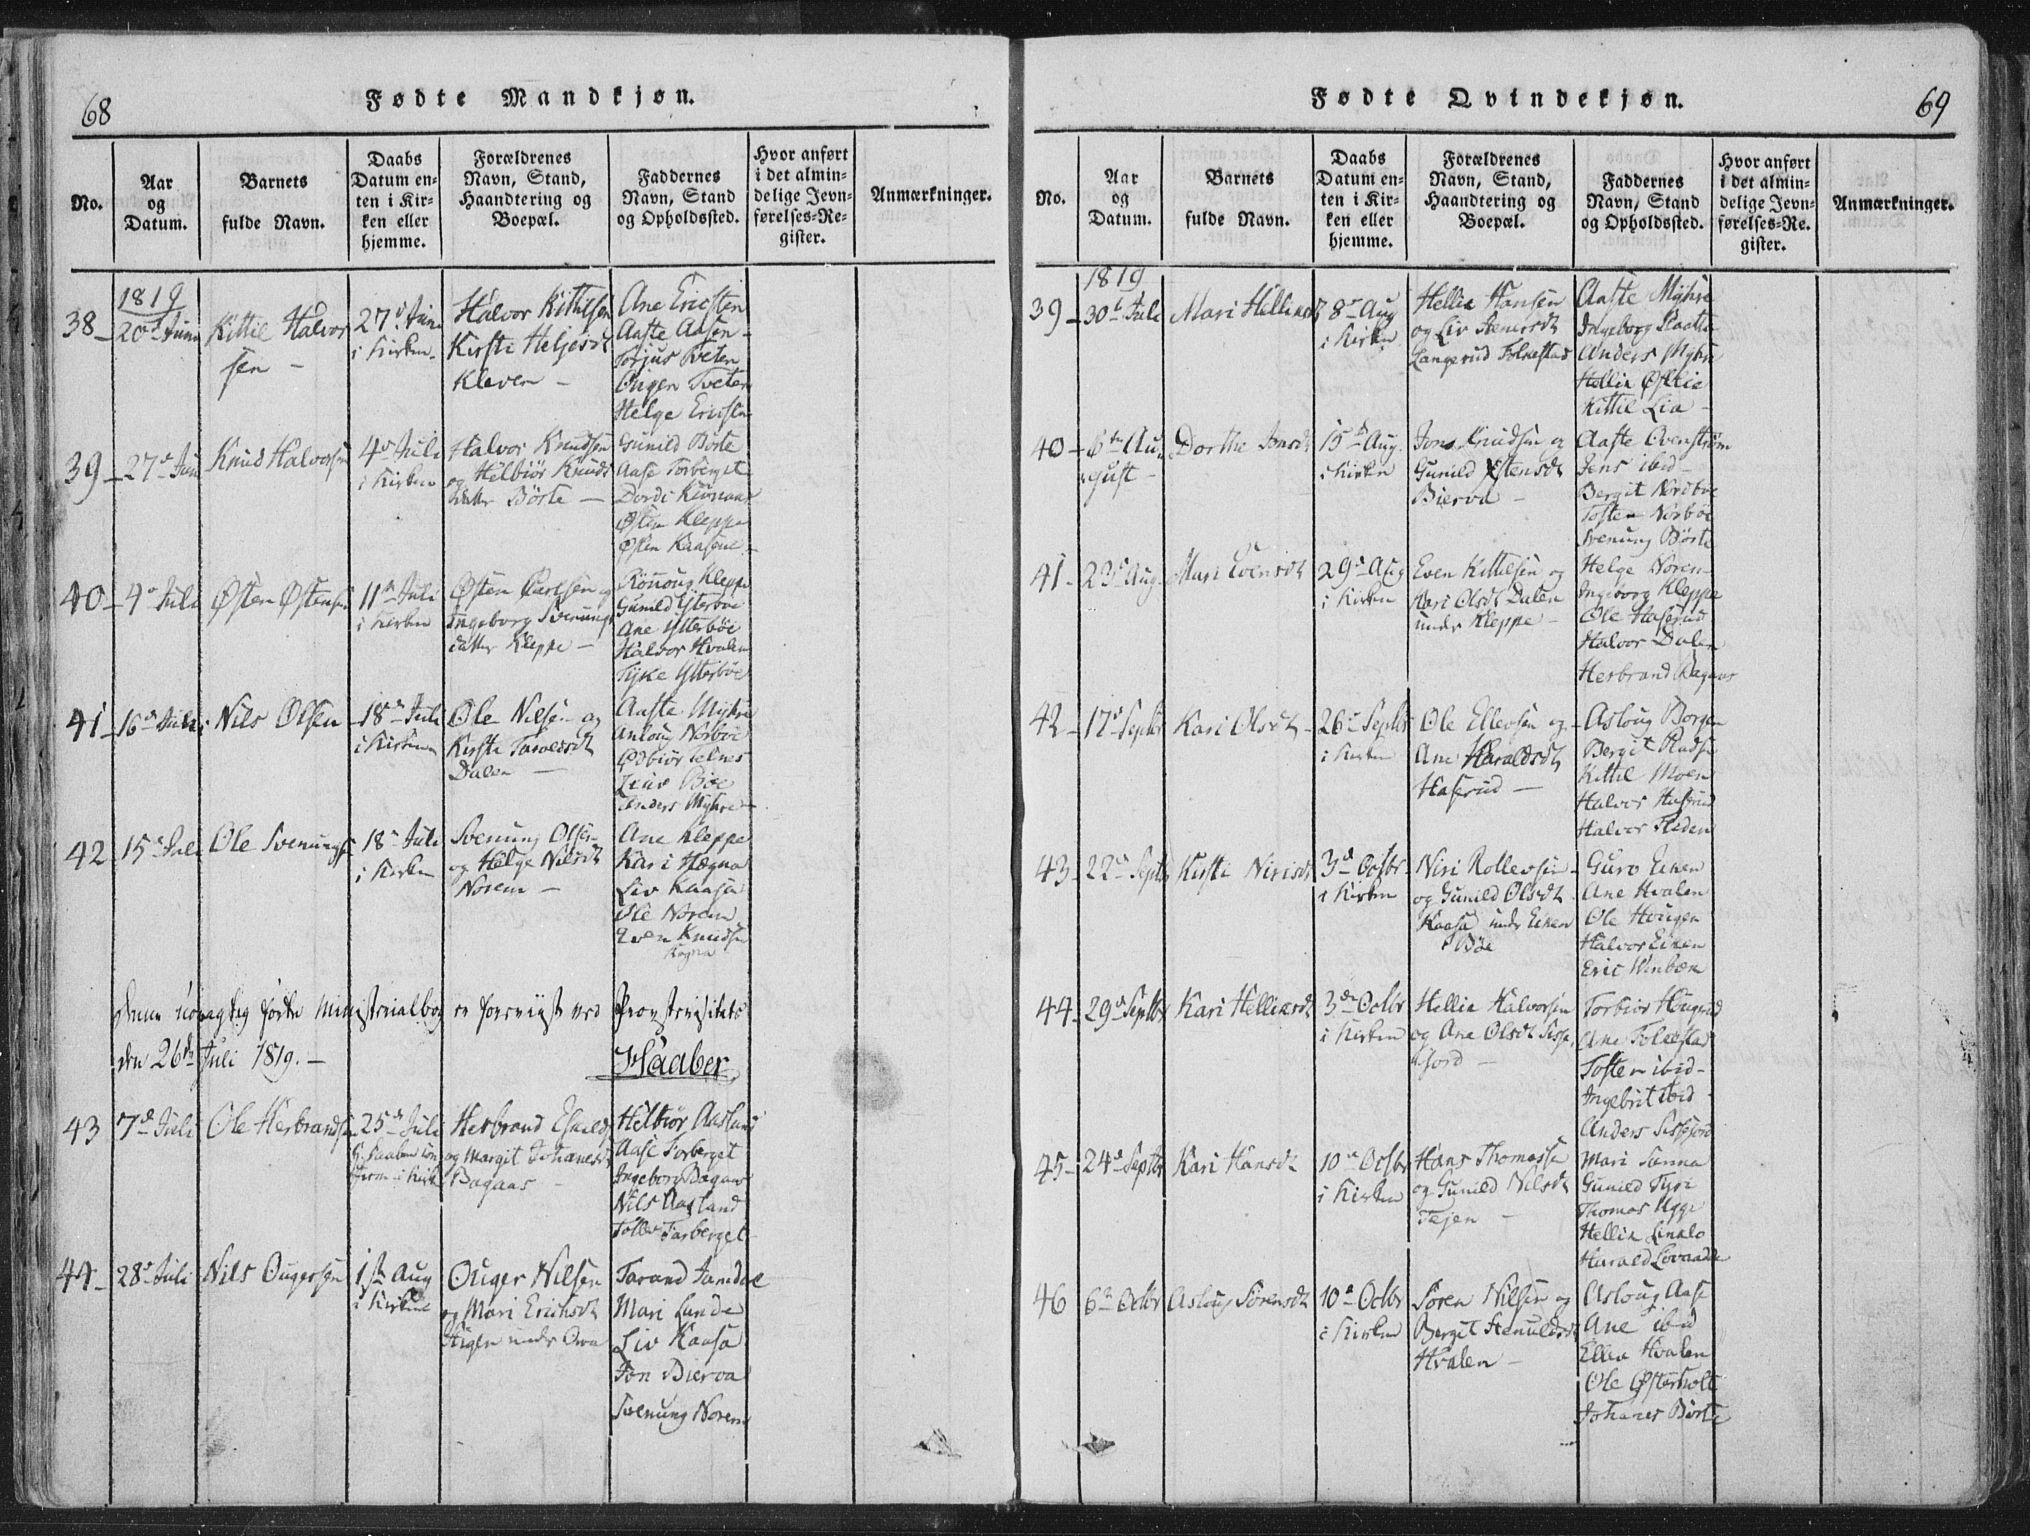 68
Fødte Mandkjøn.
No.
Aar
og
Datum.
Barnets
fulde Navn.
Daabs
Datum en-
ten i Kir-
ken eller
hjemme.
Forældrenes
Navn, Stand,
Haandtering og
Boepæl.
Faddernes
Navn, Stand
og Opholdssted.
Hvor anført
i det almin-
delige Jevn-
førelses-Re-
gister.
Anmærkninger.
1819
38
20de Juni
Kittil Halvor
sen
27d Juni
i Kirken
Halvor Kittilsen
Kirsti Heljesdt
Kleven
Ane Ericsten
Aaste Aasen
Torjus Tveten
Tveten
Helge Ericsten
39
27d Juni
Knud Halvorsen
4d Juli
i Kirken
Halvor Knudsen
og Helbiør Knuds
datter Børte
Gunild Børte
Aase Torberget
Dordi
Østen Kleppe
Østen Kaasene
40
4d Juli
Østen Østensen
11d Juli
i Kirken
Østen og
Ingeborg Svenungs
datter Kleppe
Kleppe
Gunild Ytterbøe
Ane Ytterbøe
Halvor Hvalen
Ytterbøe
41
16d Juli
Nils Olsen
18d Juli
i Kirken
Ole Nilsen og
Kirsti
Dalen
Aaste Myhre
Norbøe
Telnes
Bøe
Anders Myhre
42
15d Juli
Ole Svenungs
18d Juli
i Kirken
Svenung Olsen
og Helge Nilsdt
Norem
Ane Kleppe
Kari Hægna
Liv Kaasa
Ole Norem
Even Knudsen
Denne nøiagtig førte Ministerialbog er foreviist ved Provstevisitats
den 26de Juli 1819.
Haaber
43
7de Juli
Ole Herbrandsen
25de Juli
i Kirk
Herbrand
og Margit Johanesdt
Bagaas
Helbiør Aasland
Aase Torberget
Ingeborg Bagaas
Nils Aasland
Tollev Torberget
44
28d Juli
Nils Ougersen
1ste Aug
i Kirken
Ouger Nilsen
og Mari Ericksdt
Higen under
Jamdøl
Mari Lunde
Liv Kaasa
Jon Bierva
Svenung Norem
69
Fødte Qvindekjøn.
No.
Aar
og
Datum.
Barnets
fulde Navn.
Daabs
Datum en-
ten i Kir-
ken eller
hjemme.
Forældrenes
Navn, Stand,
Haandtering og
Boepæl.
Faddernes
Navn, Stand
og Opholdssted.
Hvor anført
i det almin-
delige Jevn-
førelses-Re-
gister.
Anmærkninger.
1819
39
30d Juli
Mari Helliksdt
8d Aug
i Kirken
Hellik Hansen
og Liv
Langerud Folkestad
Aaste Myhre
Ingeborg
Anders Myhre
Hellik
Kittil Lia
40
6te Au
gust
Dorthe Jonsdt
15d Aug
i Kirken
Jon Knudsen og
Gunild Østensdt
Bierva
Aaste Ovenstrøm
Jens ibid
Bergit Norbøe
Tosten Norbøe
Svenung Børte
41
23d Aug
Mari Evensdt
29d Aug
i Kirken
Even Kittilsen og
Kari Olsdt Dalen
under Kleppe
Helge Norem
Ingeborg Kleppe
Ole Haserud
Halvor Dalen
Herbrand Bagaas
42
17d Septbr
Kari Olsdt
26d Septbr
i Kirken
Ole Ellevsen og
Ane Haraldsdt
Haserud
Asloug Borgen
Bergit
Kittil Moen
Halvor Haserud
Halvor
43
22d Septbr
Kirsti Nirisdt
3d Octbr
i Kirken
Niri Rollevsen
og Gunild Olsdt
Kaasa under Eiken
Bøe
Guro Eiken
Ane Hvalen
Ole Hougen
Halvor Eiken
Eric Vinbæk
44
29d Septbr
Kari Helliksdt
3de Octbr
i Kirken
Hellik Halvorsen
og Ane Olsdt Sisse
jord
Torbiør
Ane Folkestad
Tosten ibid
Ingebrit ibid
Anders Sissejord
45
24d Septbr
Kari Hansdt
10d Octbr
i Kirken
Hans Thomassen
og Gunild Nilsdt
Tejen
Mari Sanna
Gunild
Thomas
Hellik
Harald
46
6te Octbr
Asloug Sørensdt
10d Octbr
i Kirken
Søren Nilsen og
Bergit
Hvalen
Asloug Aase
Ane ibid
Hvalen
Ole Østerholt
Johanes Børte